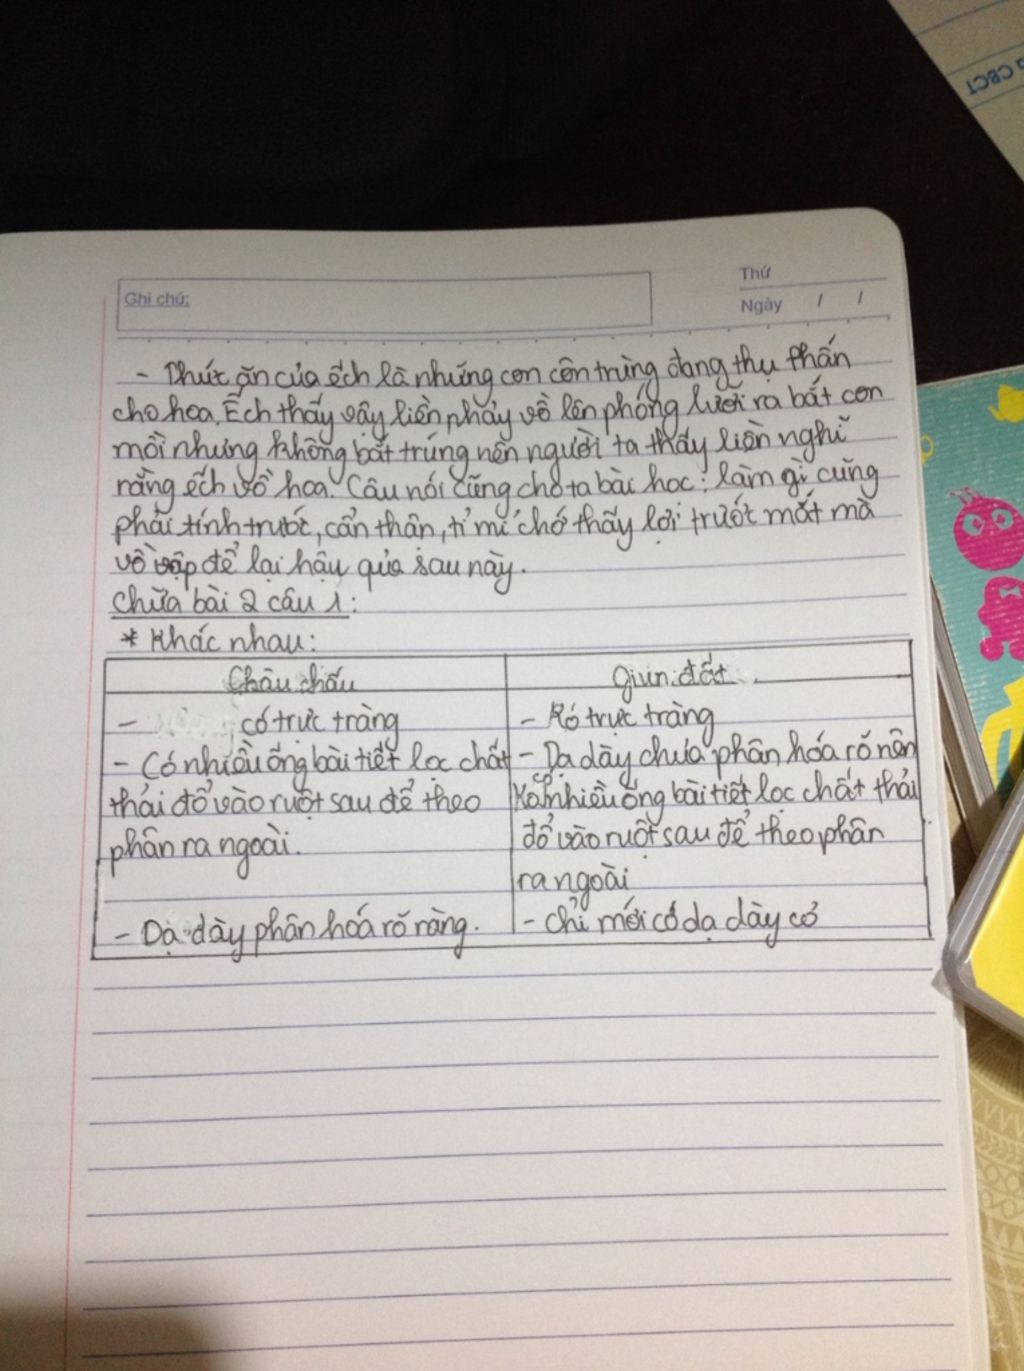 CBCT
Thứ
Ghi chú:
Ngày / /
- Thức ăn của ếch là những con côn trùng đang thụ phấn
cho hoa. Ếch thấy vậy liền nhảy vồ lên phóng lưỡi ra bắt con
mồi nhưng không bắt trúng nên người ta thấy liền nghĩ
rằng ếch vồ hoa. Câu nói cũng cho ta bài học: làm gì cũng
phải tính trước, cẩn thận, tỉ mỉ chớ thấy lợi trước mắt mà
vồ vập để lại hậu quả sau này.
Chữa bài 2 câu 1:
* Khác nhau:
Châu chấu
Giun đất
- có trực tràng
- Có nhiều ống bài tiết lọc chất
thải đổ vào ruột sau để theo
phân ra ngoài.
- Dạ dày phân hóa rõ ràng.
- Kó trực tràng
- Dạ dày chưa phân hóa rõ nên
nhiều ống bài tiết lọc chất thải
đổ vào ruột sau để theo phân
ra ngoài
- chỉ mới có dạ dày cơ